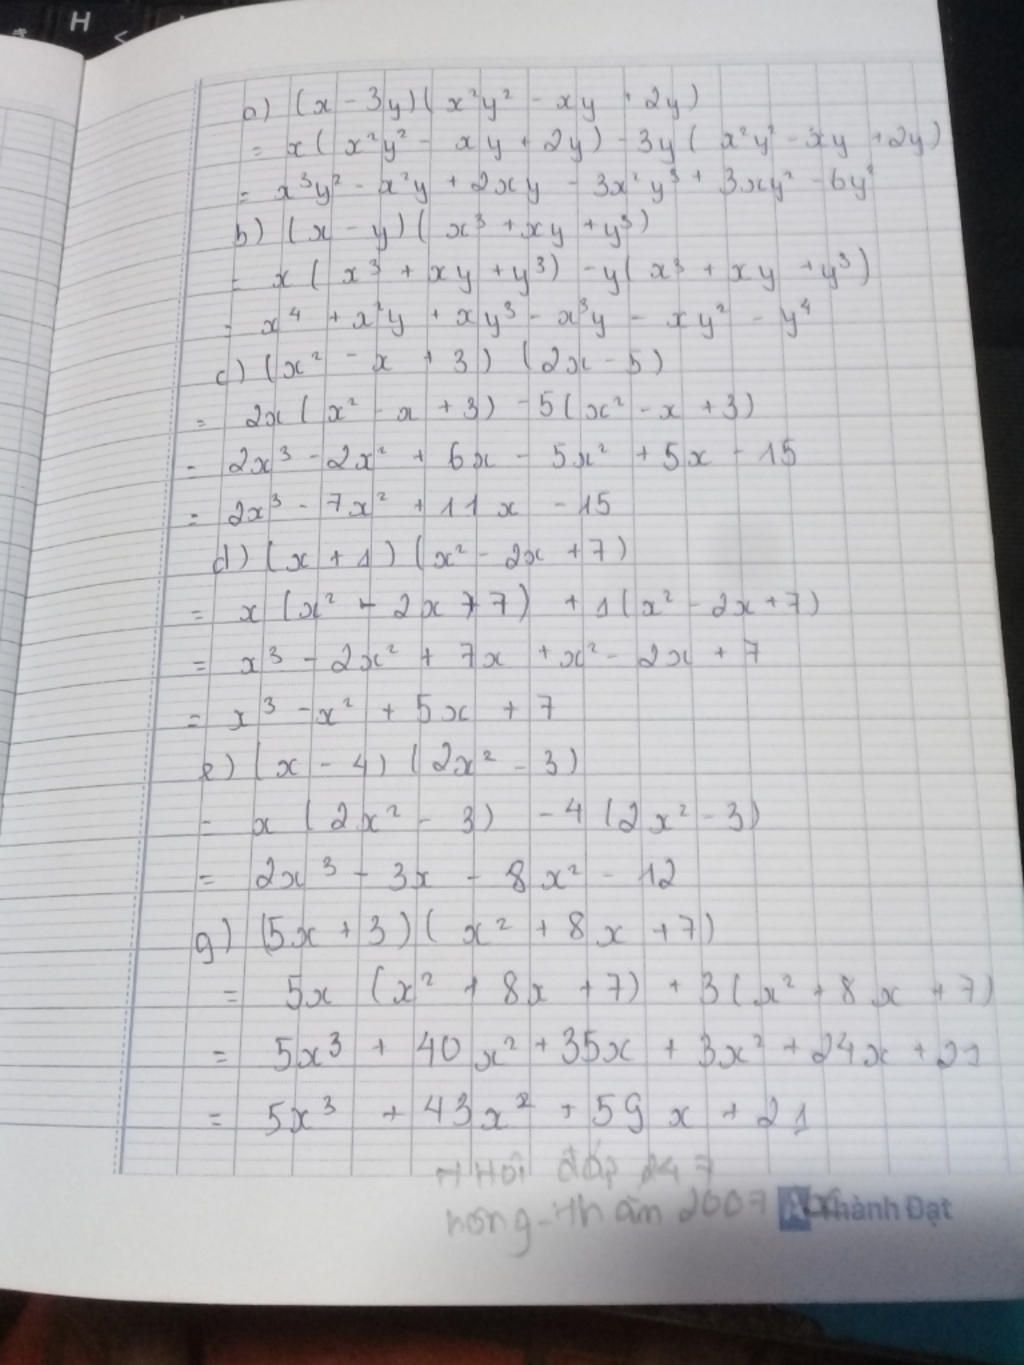 H
<
a) (x - 3y)(x²y² - xy + 2y)
= x(x²y² - xy + 2y) - 3y(x²y² - xy + 2y)
= x³y² - x²y + 2xy - 3x²y³ + 3xy² - 6y²
b) (x - y)(x³ + xy + y³)
= x(x³ + xy + y³) - y(x³ + xy + y³)
= x⁴ + x²y + xy³ - x³y - xy² - y⁴
c) (x² - x + 3)(2x - 5)
= 2x(x² - x + 3) - 5(x² - x + 3)
= 2x³ - 2x² + 6x - 5x² + 5x - 15
= 2x³ - 7x² + 11x - 15
d) (x + 1)(x² - 2x + 7)
= x(x² - 2x + 7) + 1(x² - 2x + 7)
= x³ - 2x² + 7x + x² - 2x + 7
= x³ - x² + 5x + 7
e) (x - 4)(2x² - 3)
= x(2x² - 3) - 4(2x² - 3)
= 2x³ - 3x - 8x² - 12
g) (5x + 3)(x² + 8x + 7)
= 5x(x² + 8x + 7) + 3(x² + 8x + 7)
= 5x³ + 40x² + 35x + 3x² + 24x + 21
= 5x³ + 43x² + 59x + 21
Hỏi đáp 247
Thành Đạt